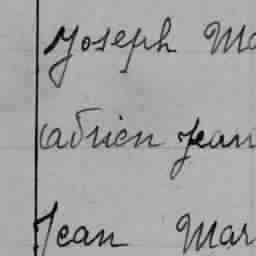 Joseph Ma
Adrien Jean
Jean Mar